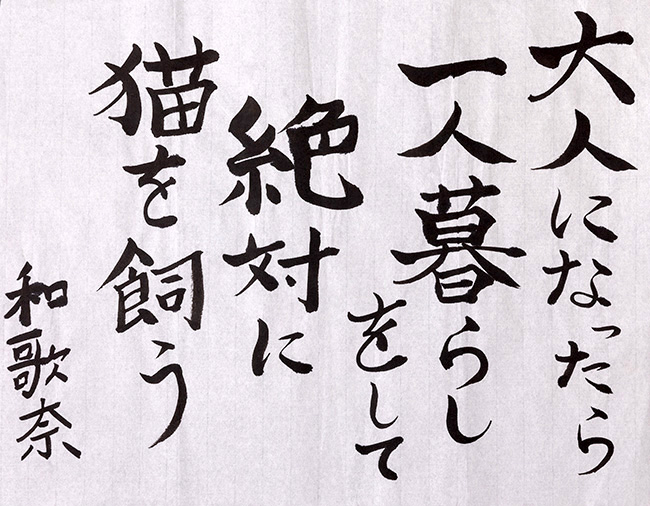 大人になったら
一人暮らし
をして
絶対に
猫を飼う
和歌奈